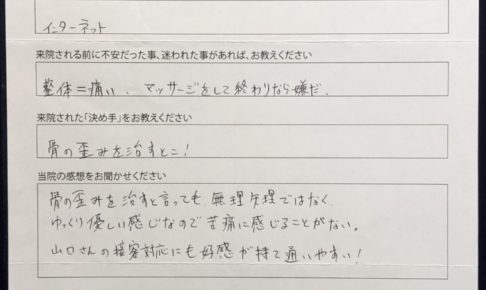 インターネット
来院される前に不安だった事、迷われた事があれば、お教えください
整体＝痛い、マッサージをして終わりなら嫌だ。
来院された「決め手」をお教えください
骨の歪みを治すとこ!
当院の感想をお聞かせください
骨の歪みを治すと言っても、無理矢理ではなく、
ゆっくり優しい感じなので苦痛に感じることがない。
山口さんの接客対応にも好感が持て通いやすい!